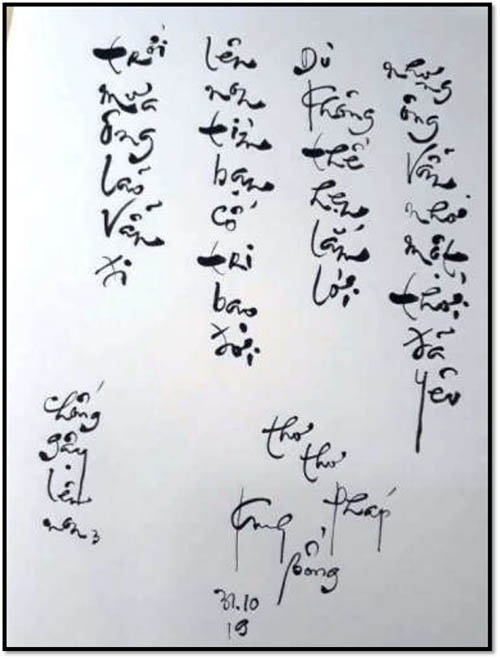 trời mưa ông lão vẫn đi
lên non tìm bạn cố tri bao đời
Dù không thề hẹn lắm lời
nhưng ông vẫn nhớ một thời đã yêu
chống gậy lên non 3
thơ thơ
Pháp
31.10
19